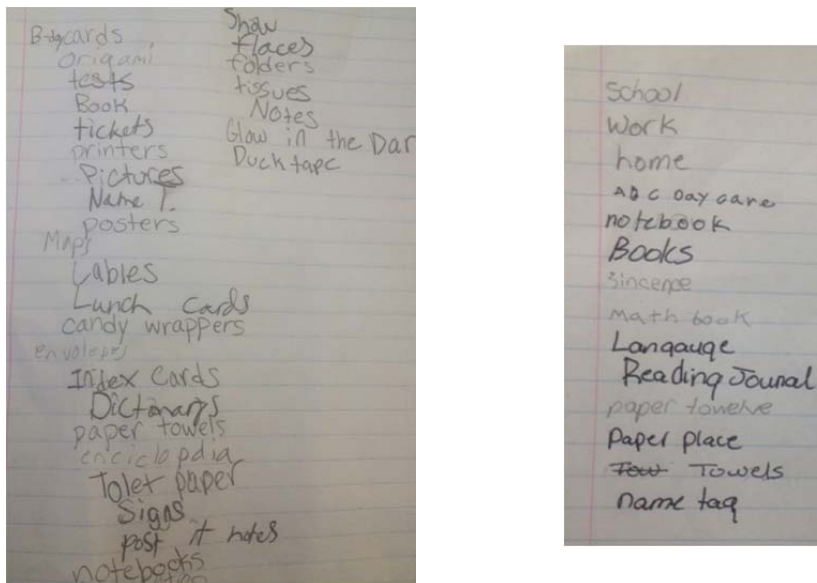 B-day cards
origami
tests
Book
tickets
printers
Pictures
Name T.
posters
Maps
Lables
Lunch Cards
candy wrappers
envolepes
Index Cards
Dictonarys
paper towels
enciclopdia
Tolet paper
Signs
post it notes
notebooks
Show
flaces
folders
tissues
Notes
Glow in the Dar
Duck tape
School
Work
home
ABC Day care
notebook
Books
Sincence
math book
Langauge
Reading Jounal
paper towelve
Paper place
Tow Towels
name tag